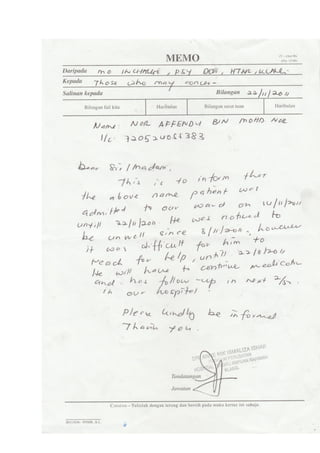 MEMO
Daripada MO INCHARGE, PSY DEPT, HTAR, KLANG.
Kepada Those who may concern
Salinan kepada Bilangan 22/11/2011
Bilangan fail kita Haribulan Bilangan surat tuan Haribulan
Name: NOR AFFENDY BIN MOHD NOR
I/c:
Dear Sir / Madam,
This is to inform that
the above name patient was
admitted to our ward on 14/11/2011
untill 22/11/2011. He was noticed to
be unwell since 8/11/2011, however
it was difficult for him to
reach for help, untill 22/11/2011
He will have to continue medication
and has follow-up in next
in our hospital!
Please kindly be informed
Thank you.
Tandatangan
Jawatan
Catatan – Tulislah dengan terang dan bersih pada muka kertas ini sahaja